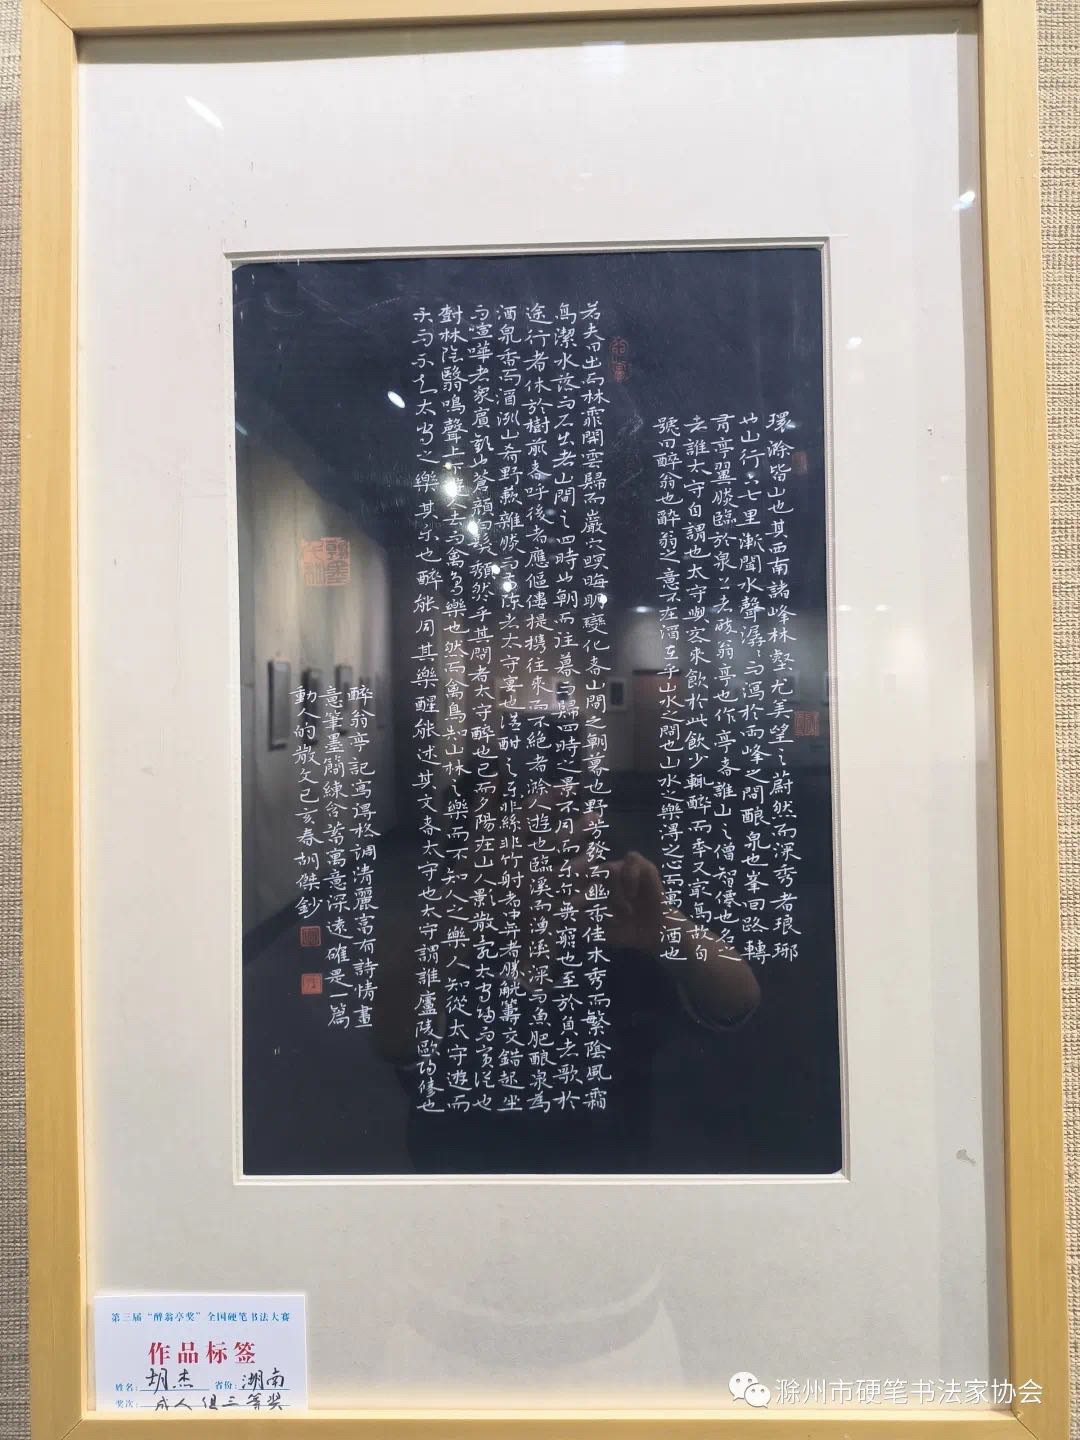 環滁皆山也其西南諸峰林壑尤美望之蔚然而深秀者琅琊
也山行六七里漸聞水聲潺潺而瀉於兩峰之間釀泉也峯回路轉
有亭翼然臨於泉上者醉翁亭也作亭者誰山之僧智僊也名之
者誰太守自謂也太守與客來飲於此飲少輒醉而年又最高故自
號曰醉翁也醉翁之意不在酒在乎山水之間也山水之樂得之心而寓之酒也
若夫日出而林霏開雲歸而巖穴暝晦明變化者山間之朝暮也野芳發而幽香佳木秀而繁陰風霜
高潔水落而石出者山間之四時也朝而往暮而歸四時之景不同而樂亦無窮也至於負者歌於
途行者休於樹前者呼後者應傴僂提攜往來而不絕者滁人遊也臨溪而漁溪深而魚肥釀泉為
酒泉香而酒洌山肴野蔌雜然而前陳者太守宴也宴酣之樂非絲非竹射者中弈者勝觥籌交錯起坐
而喧嘩者衆賓歡也蒼顏白髮頹然乎其間者太守醉也已而夕陽在山人影散亂太守歸而賓從也
樹林陰翳鳴聲上下遊人去而禽鳥樂也然而禽鳥知山林之樂而不知人之樂人知從太守遊而
樂而不知太守之樂其樂也醉能同其樂醒能述其文者太守也太守謂誰廬陵歐陽修也
醉翁亭記寫得格調清麗富有詩情畫
意筆墨簡練含蓄寓意深遠確是一篇
動人的散文己亥春胡傑鈔
第三届“醉翁亭奖”全国硬笔书法大赛
作品标签
姓名:胡杰 省份:湖南
奖次:成人组三等奖
滁州市硬笔书法家协会